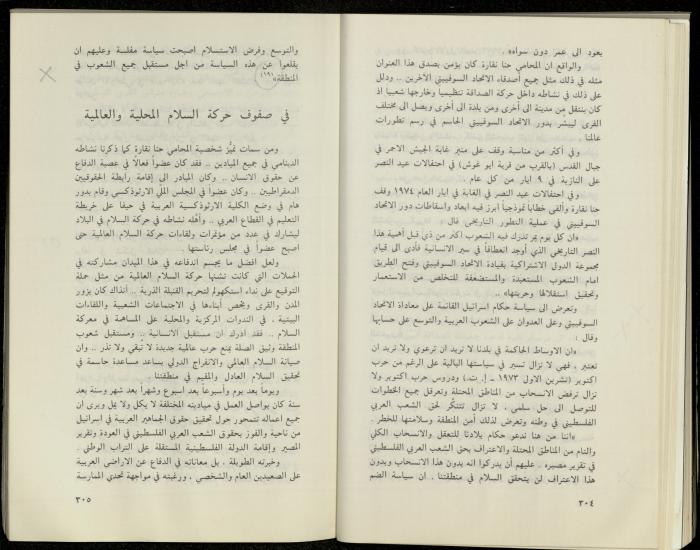 يعود الى عمر دون سواه» .
والواقع ان المحامي حنا نقارة كان يؤمن بصدق هذا العنوان
مثله في ذلك مثل جميع أصدقاء الاتحاد السوفييتي الآخرين .. ودلل
على ذلك في نشاطه داخل حركة الصداقة تنظيميا وخارجها شعبيا اذ
كان ينتقل من مدينة الى أخرى ومن بلدة الى أخرى ويصل الى مختلف
القرى ليبشر بدور الاتحاد السوفييتي الحاسم في رسم تطورات
عالمنا .
وفي أكثر من مناسبة وقف على منبر غابة الجيش الاحمر في
جبال القدس (بالقرب من قرية ابو غوش) في احتفالات عيد النصر
على النازية في ٩ ايار من كل عام .
وفي احتفالات عيد النصر في الغابة في ايار العام ١٩٧٤ وقف
حنا نقارة وألقى خطاباً نموذجياً ابرز فيه ابعاد واسقاطات دور الاتحاد
السوفييتي في عملية التطور التاريخي قال :
«ان كل يوم يمر تدرك فيه الشعوب اكثر من ذي قبل أهمية هذا
النصر التاريخي الذي أوجد انعطافاً في سير الانسانية فأدى الى قيام
مجموعة الدول الاشتراكية بقيادة الاتحاد السوفييتي وفتح الطريق
امام الشعوب المستعبدة والمستضعفة للتخلص من الاستعمار
وتحقيق استقلالها وحريتها» .
وتعرض الى سياسة حكام اسرائيل القائمة على معاداة الاتحاد
السوفييتي وعلى العدوان على الشعوب العربية والتوسع على حسابها
وقال :
«ان الاوساط الحاكمة في بلدنا لا تريد ان ترعوي ولا تريد ان
تعتبر ، فهي لا تزال تسير في سياستها البالية على الرغم من حرب
اكتوبر (تشرين الاول ١٩٧٣ - إ. ت.) ودروس حرب اكتوبر ولا
تزال ترفض الانسحاب من المناطق المحتلة وتعرقل جميع الخطوات
للتوصل الى حل سلمي . لا تزال تتنكر لحق الشعب العربي
الفلسطيني في وطنه وتعرض لذلك أمن المنطقة وسلامتها للخطر .
«اننا من هنا ندعو حكام بلادنا للتعقل والانسحاب الكلي
والتام من المناطق المحتلة والاعتراف بحق الشعب العربي الفلسطيني
في تقرير مصيره . عليهم أن يدركوا انه بدون هذا الانسحاب وبدون
هذا الاعتراف لن يتحقق السلام في منطقتنا . ان سياسة الضم
٣٠٤
والتوسع وفرض الاستسلام اصبحت سياسة مفلسة وعليهم ان
يقلعوا عن هذه السياسة من اجل مستقبل جميع الشعوب في
المنطقة» (١٩)
في صفوف حركة السلام المحلية والعالمية
ومن سمات تميّز شخصية المحامي حنا نقارة كما ذكرنا نشاطه
الدينامي في جميع الميادين .. فقد كان عضواً فعالاً في عصبة الدفاع
عن حقوق الانسان .. وكان المبادر الى إقامة رابطة الحقوقيين
الدمقراطيين .. وكان عضواً في المجلس الملّي الارثوذكسي وقام بدور
هام في وضع الكلية الارثوذكسية العربية في حيفا على خريطة
التعليم في القطاع العربي .. وأهّله نشاطه في حركة السلام في البلاد
ليشارك في عدد من مؤتمرات ولقاءات حركة السلام العالمية حتى
اصبح عضواً في مجلس رئاستها .
ولعل افضل ما يجسم اندفاعه في هذا الميدان مشاركته في
الحملات التي كانت تشنها حركة السلام العالمية من مثل حملة
التوقيع على نداء استكهولم لتحريم القنبلة الذرية .. آنذاك كان يزور
المدن والقرى ويحض أبناءها في الاجتماعات الشعبية واللقاءات
البيتية ، في الندوات المركزية والمحلية على المساهمة في معركة
السلام .. فقد ادرك ان مستقبل الانسانية .. ومستقبل شعوب
المنطقة وثيق الصلة بمنع حرب عالمية جديدة لا تبقي ولا تذر .. وان
صيانة السلام العالمي والانفراج الدولي يساعد مساعدة حاسمة في
تحقيق السلام العادل والمقيم في منطقتنا .
ويوماً بعد يوم وأسبوعاً بعد اسبوع وشهراً بعد شهر وسنة بعد
سنة كان يواصل العمل في ميادينه المختلفة لا يكل ولا يمل ويرى ان
جميع اعماله تتمحور حول تحقيق حقوق الجماهير العربية في اسرائيل
من ناحية والفوز بحقوق الشعب العربي الفلسطيني في العودة وتقرير
المصير وإقامة الدولة الفلسطينية المستقلة على التراب الوطني .
وخبرته الطويلة ، بل معاناته في الدفاع عن الاراضي العربية
على الصعيدين العام والشخصي ، ورغبته في مواجهة تحدي الممارسة
٣٠٥